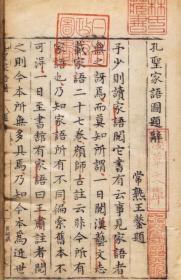 孔聖家語圖題辭
常熟王鏊題
予少則讀家語閱它書有云事見家語者
無之訝焉而莫知所謂一日閱漢藝文志
載家語二十七卷顏師古註云非今所有
家語也乃知家語所有不同舊本不
可得一日至書館有家語曰王肅註者閱
之則今本所無多具焉乃知今本為近世